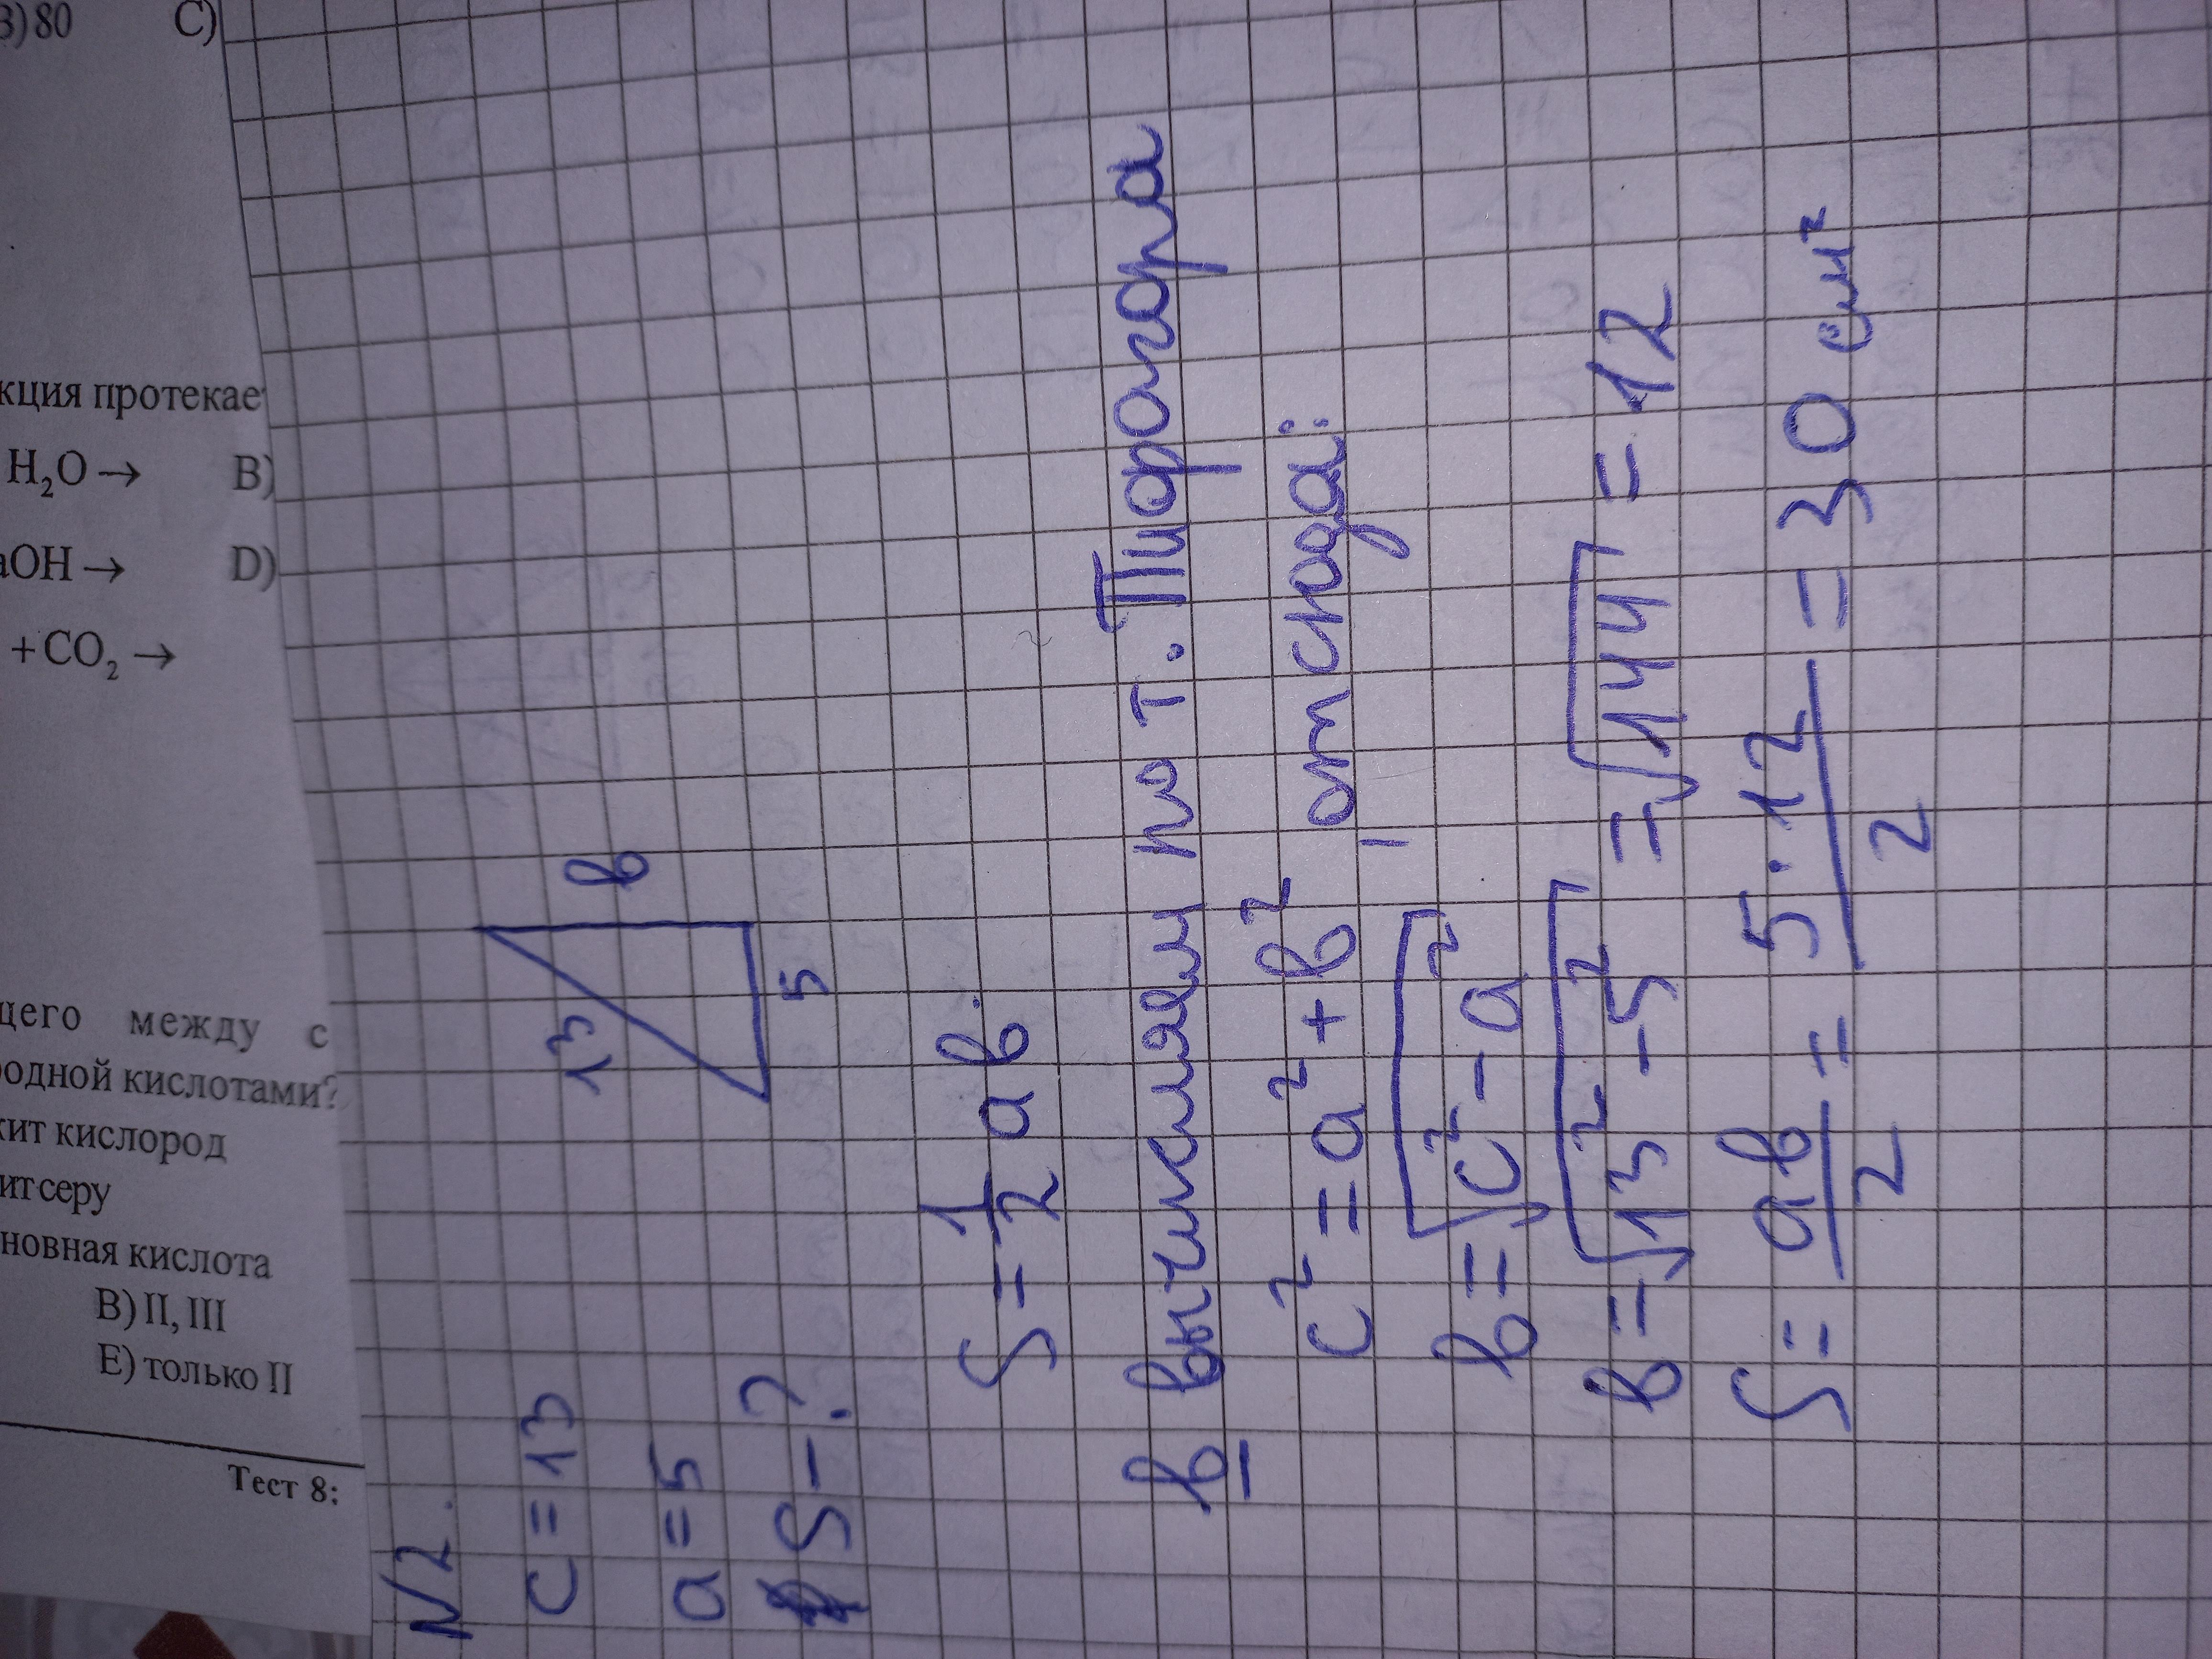 3) 80 C)
кция протекае
H₂O → B)
aOH → D)
+CO₂ →
щего между с
родной кислотами?
жит кислород
ит серу
новная кислота
B) II, III
E) только II
Тест 8:
N2.
c = 13
a = 5
S - ?
13
в
5
S = 1/2 aв.
в вычисляем по т. Пифагора
c² = a² + в², отсюда:
в = √(c² - a²)
в = √(13² - 5²) = √144 = 12
S = aв/2 = 5·12/2 = 30 см²